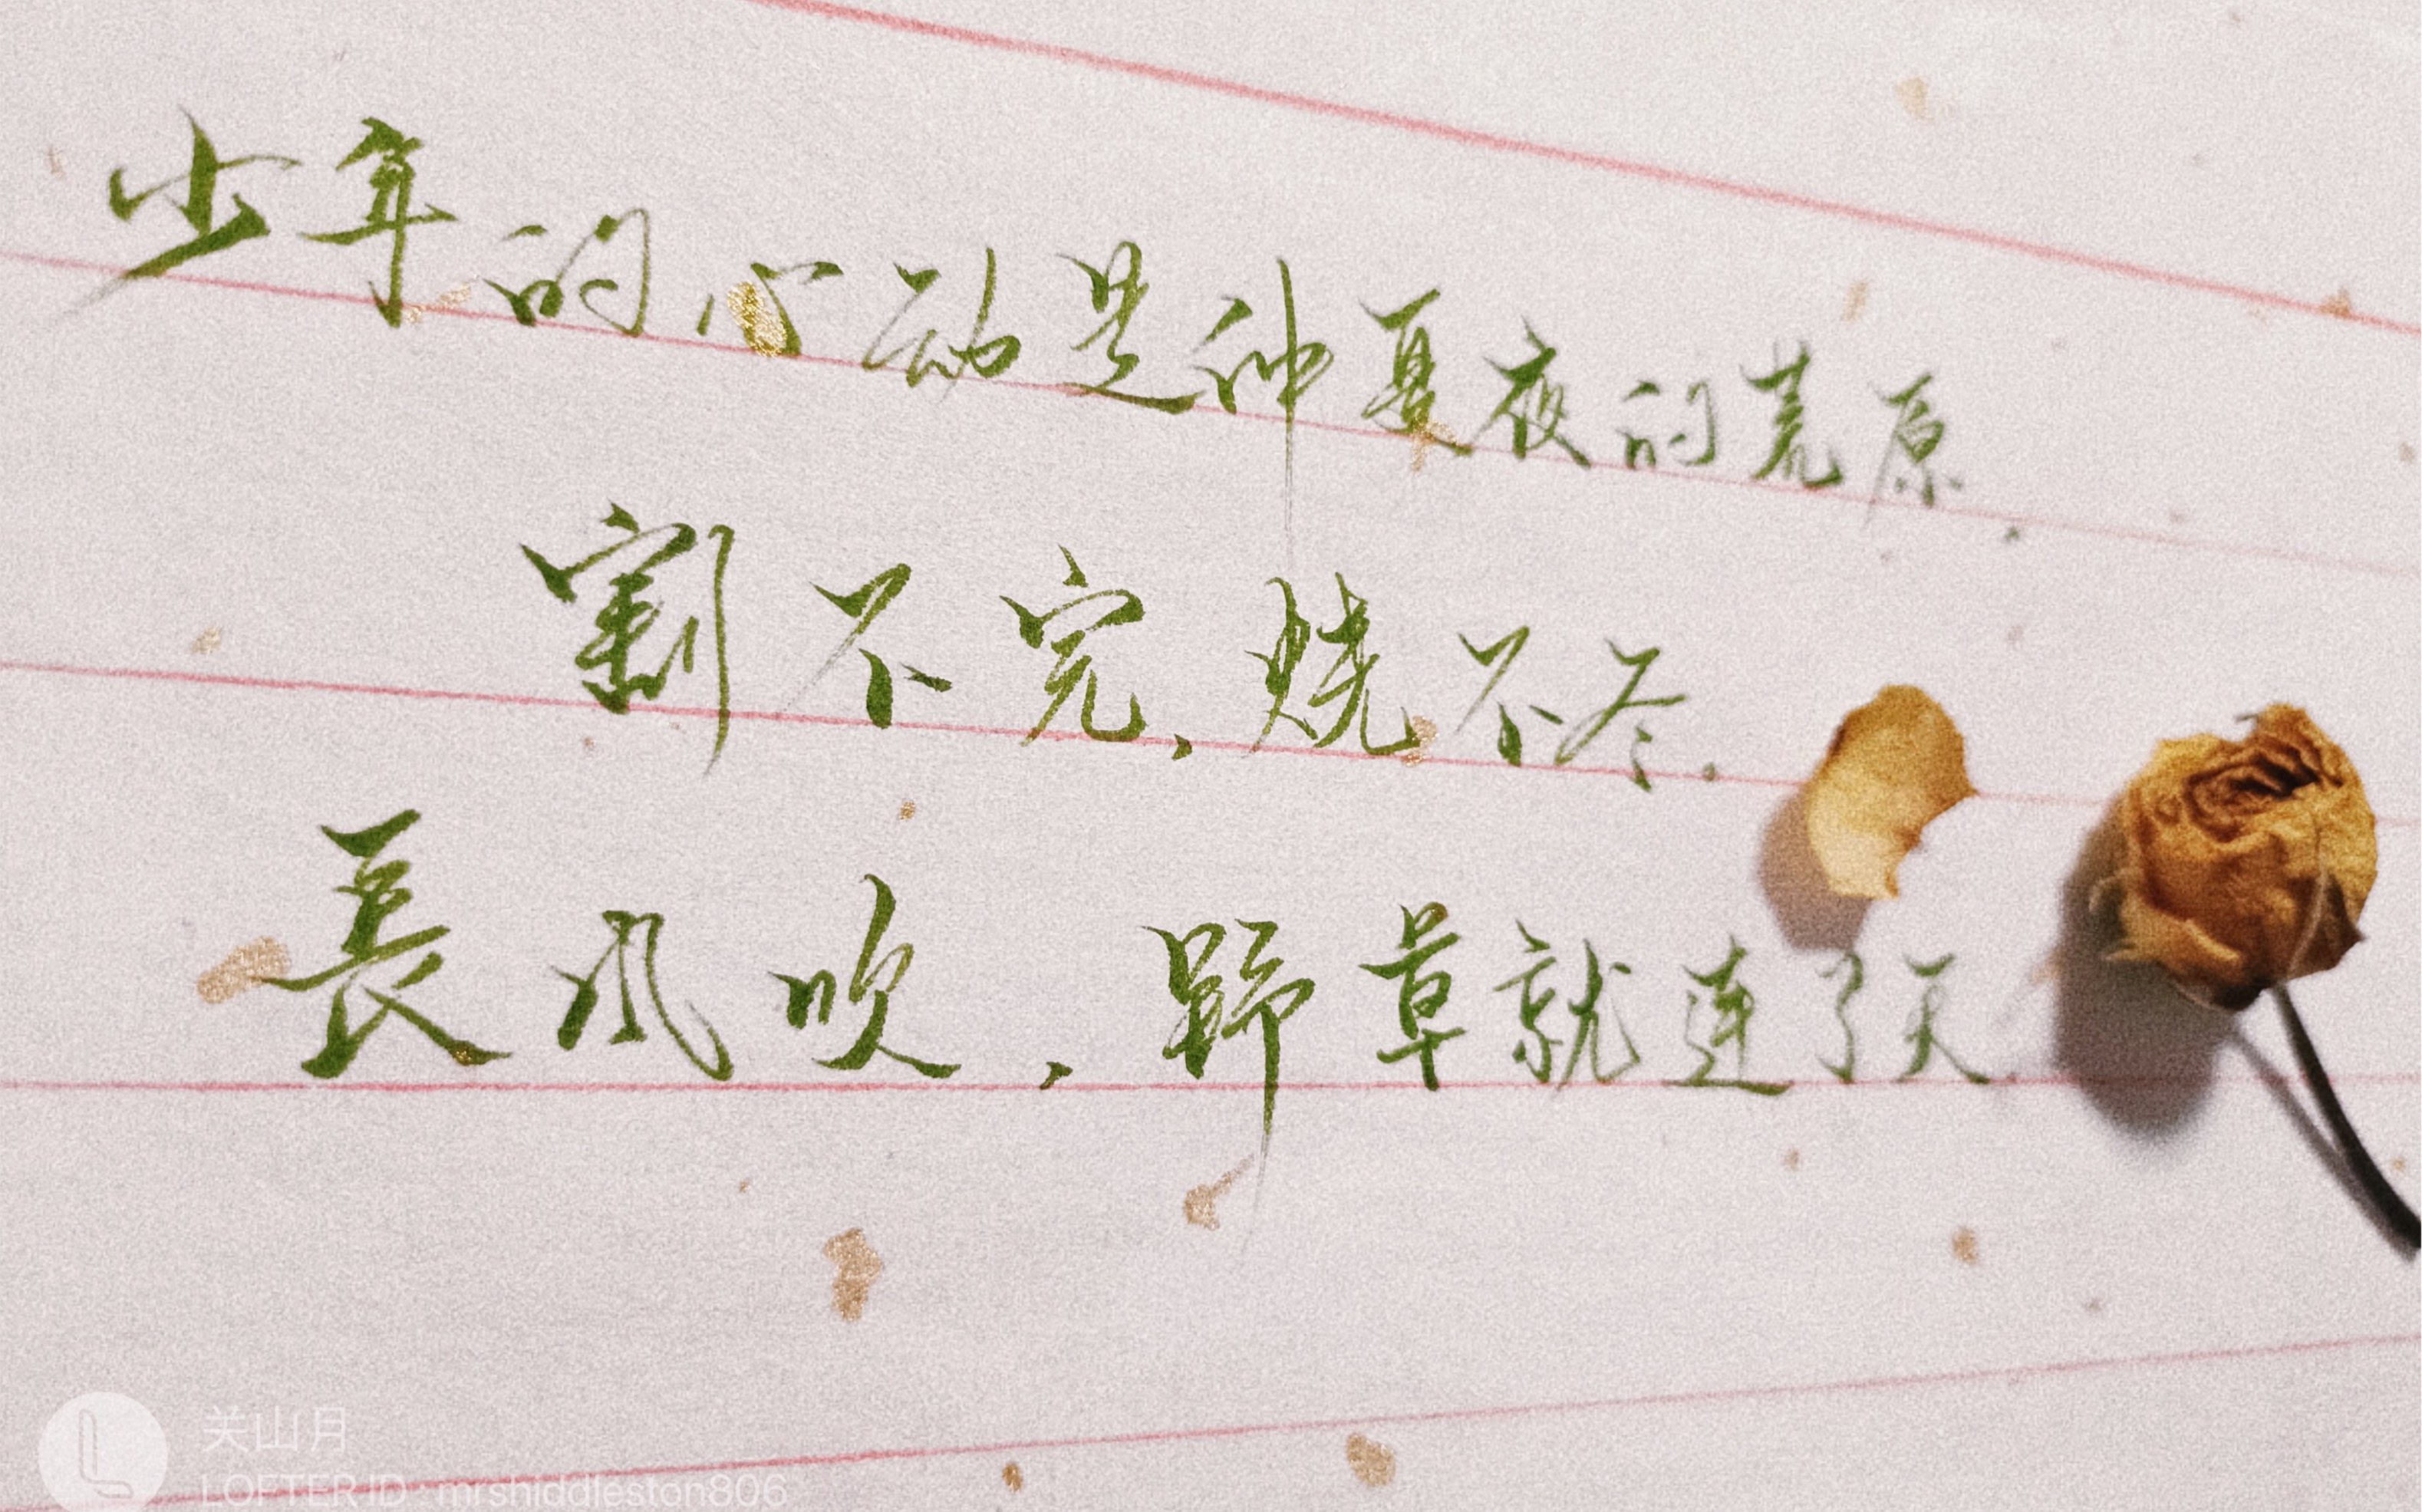 少年的心动是仲夏夜的荒原.
割不完、烧不尽.
長风吹、野草就連了天.
关山月
LOFTER ID：mrshiddleston806